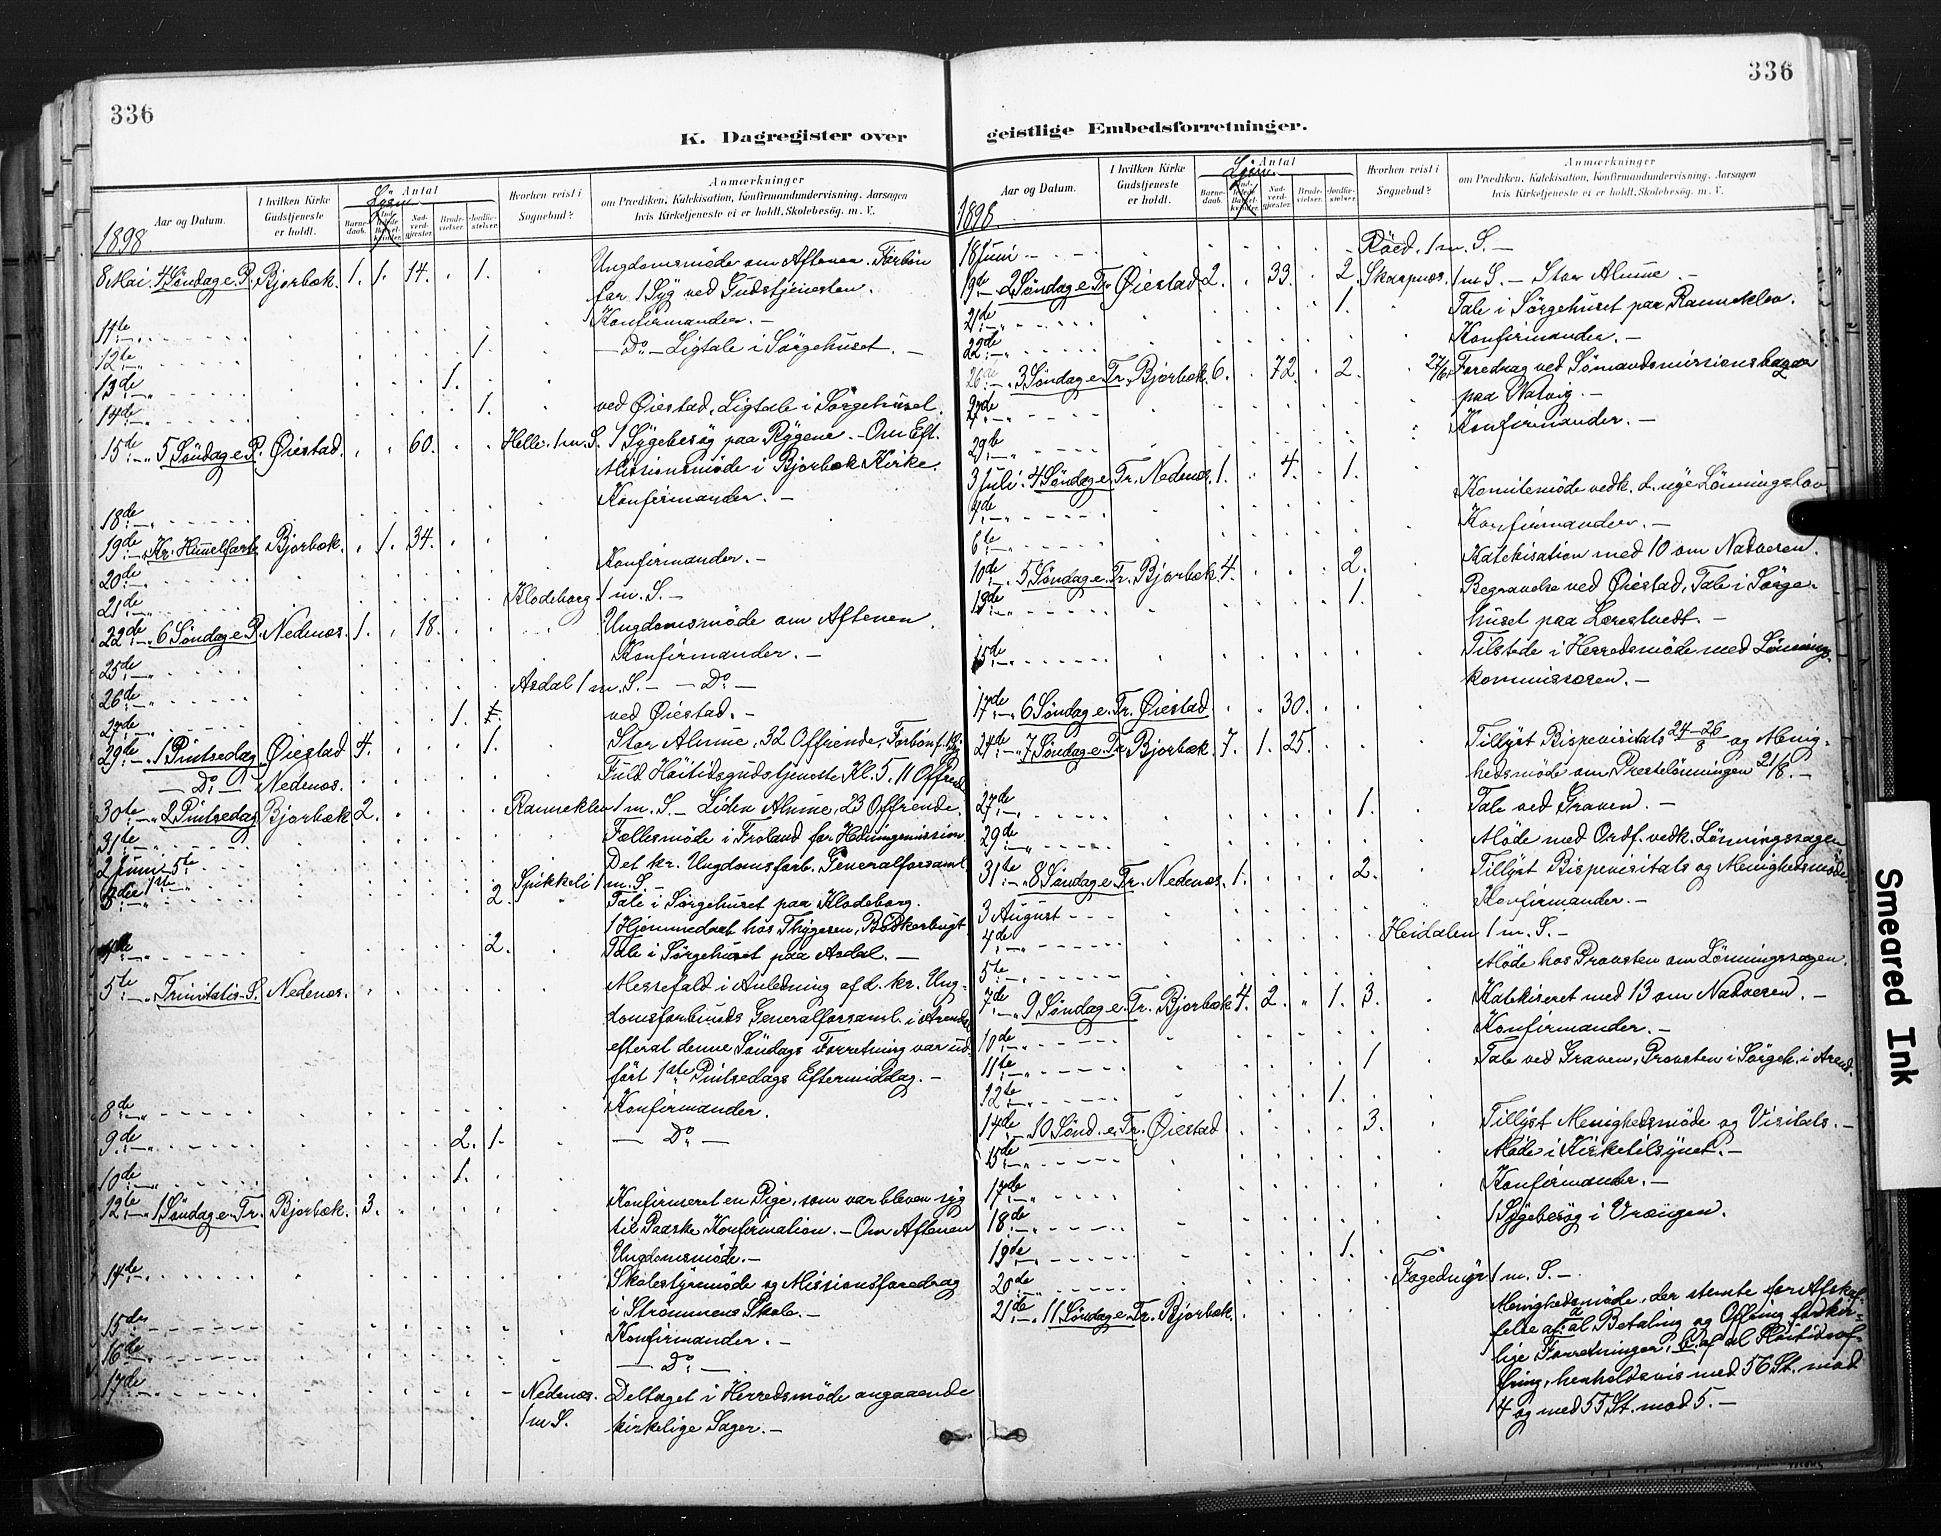 336
K. Dagregister over
Aar og Datum. I hvilken Kirke Gudstjeneste er holdt. Antal Barne-daab. Nad-verd-gjæster. Brude-vielser. Jordfæ-stelser. Hvorhen reist i Sognebud? Anmærkninger om Prædiken, Katekisation, Konfirmandundervisning. Aarsagen hvis Kirketjeneste ei er holdt. Skolebesøg. m. V.
1898
8 Mai 4 Søndag e. P. Bjorbæk. 1. 1. 14. 1. Ungdomsmøde om Aftenen. Forbøn
for 1 Syg ved Gudstjenesten.
11te Konfirmander. –
12te 1. – Do – Ligtale i Sørgehuset. –
13de 1.
14de 1. ved Øiestad, Ligtale i Sørgehuset.
15de 5 Søndag e. P. Øiestad. 60. Helle. 1 m. S. 1 Sygebesøg paa Rygene. – Om Eft.
Missionsmøde i Bjorbæk Kirke.
18de Konfirmander. –
19de Kr. Himmelfart. Bjorbæk. 1. 34.
20de Konfirmander. –
21de Klodeborg 1 m. S. –
22de 6 Søndag e. P. Nedenæs. 1. 18. Ungdomsmøde om Aftenen.
25de Konfirmander. –
26de Asdal 1 m. S. – – Do –
27de 1. ved Øiestad. –
29de 1 Pintsedag Øiestad 4. 1. Stor Almue, 32 Offrende,
– Do – Nedenæs. Fuld Høitidsgudstjeneste Kl. 5. 11 Offrend.
30te 2 Pintsedag Bjorbæk 2. Ranneklev 1 m. S. – Liden Almue, 23 Offrende.
31te Fællesmøde i Froland for Hedningemission.
2 Juni Det kr. Ungdomsforb. Generalforsaml.
Spikkeli 1 m. S. –
2. Tale i Sørgehuset paa Klodeborg.
1 Hjemmedaab hos Thygesen,
2. Tale i Sørgehuset paa Asdal. –
5te Trinitatis. S. Nedenæs. Messefald i Anledning af d. kr. Ung-
domsforbunds Generalforsaml. i Arendal
efterat denne Søndags Forretning var ud-
ført 1ste Pintsedags Eftermiddag. –
8de Konfirmander.
9de 2. 1. – Do –
10de 1.
12te 1 Søndag e. Tr. Bjorbæk. 3. Konfirmeret en Pige, som var bleven syg
til Paaske Konfirmation. – Om Aftenen
Ungdomsmøde. –
14de Skolestyremøde og Missionsforedrag
i Strømmens Skole. –
15de Konfirmander. –
16de – Do –
17de Nedenæs. 1 m S. Deltaget i Herredsmøde angaaende
kirkelige Sager. –
336
geistlige Embedsforretninger.
Aar og Datum. I hvilken Kirke Gudstjeneste er holdt. Antal Barne-daab. Nad-verd-gjæster. Brude-vielser. Jordfæ-stelser. Hvorhen reist i Sognebud? Anmærkninger om Prædiken, Katekisation, Konfirmandundervisning. Aarsagen hvis Kirketjeneste ei er holdt. Skolebesøg m. V.
1898.
18 Juni Røed. 1 m. S. –
19de 2 Søndag e. Tr. Øiestad 2. 33. 2. Skarpnæs. 1 m S. – Stor Almue. –
21de 1. Tale i Sørgehuset paa Ranneklev.
22de Konfirmander. –
26de 3 Søndag e. Tr. Bjorbæk 6. 72. 2. 27/6. Foredrag ved Sømandsmissionsbazar
27de paa Natvig. –
29de Konfirmander. –
3 Juli. 4 Søndag e. Tr. Nedenæs. 1. 4. 1.
Komitemøde vedk. d. nye Lønningslov
6te Konfirmander. –
10de 5 Søndag e. Tr. Bjorbæk 4. 2. Katekisation med 10 om Nadveren.
13de 1. Begravelse ved Øiestad. Tale i Sørge-
huset paa Lærestvedt. –
15de Tilstede i Herredsmøde med Lønnings-
kommissæren. –
17de 6 Søndag e. Tr. Øiestad 30.
24de 7 Søndag e. Tr. Bjorbæk 7. 1. 25. Tillyst Bispevisitats 24–26/8 og Menig-
hedsmøde om Prestelønningen 21/8. –
27de 1. Tale ved Graven. –
29de Møde med Ordf. vedk. Lønningssagen
31te 8 Søndag e. Tr. Nedenæs. 1. 2. Tillyst Bispevisitats og Menighedsmøde
3 August Konfirmander. –
4de Heidalen 1 m. S. –
5te Møde hos Provsten om Lønningssagen.
7de 9 Søndag e. Tr. Bjorbæk 4. 2. 1. 3. Katekiseret med 13 om Nadveren. –
10de Konfirmander. –
11te 1 Tale ved Graven, Provsten i Sørgeh. i Arend.
12te 1.
14de 10 Sønd. e. Tr. Øiestad 3. Tillyst Menighedsmøde og Visitats. –
15de Møde i Kirketilsynet. –
17de Konfirmander. –
18de 1 Sygebesøg i Vrængen.
19de 1.
20de Fogedmyr 1 m. S. –
21de 11 Søndag e. Tr. Bjorbæk. Menighedsmøde, der stemte for Afskaf-
felse af: a. al Betaling og Ofring for kirke-
lige Forretninger, b. af al Høitidsof-
fring, henholdsvis med 56 St. mod
4 og med 55 St. mod 5. –
Smeared Ink